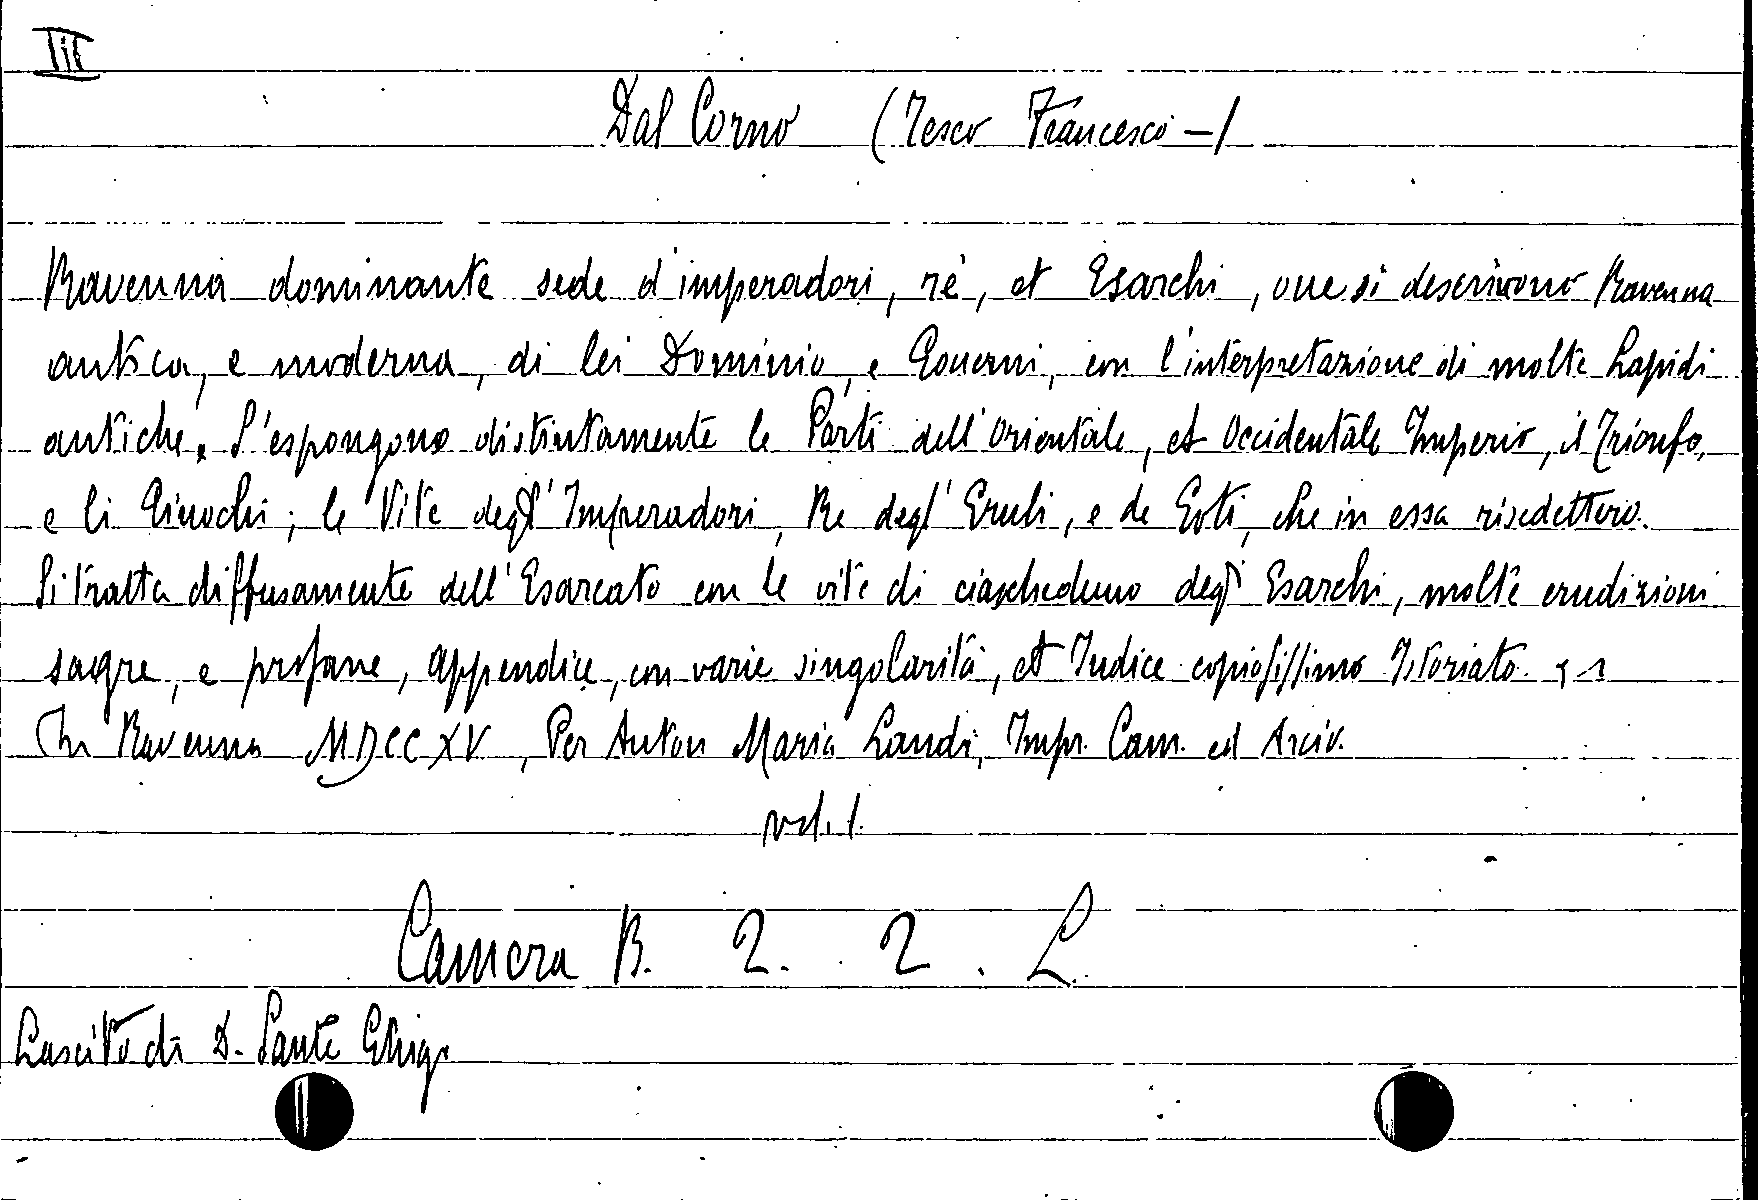 III
Dal Corno (Tesco Francesco -)
Ravenna dominante sede d'imperadori, rè, et Esarchi, oue si descrivono Ravenna
antica, e moderna, di lei Dominio, e Gouerni, con l'interpretazione di molte Lapidi
antiche. S'espongono distintamente le Parti dell'Orientale, et Occidentale Imperio, il Trionfo,
e li Giuochi; le Vite degl'Imperadori, Re degl'Eruli, e de Goti, che in essa risedettero.
Si tratta diffusamente dell'Esarcato con le vite di ciascheduno degl'Esarchi, molte erudizioni
sagre, e profane, Appendice, con varie singolarità, et Indice copiosissimo Istoriato.
In Ravenna MDCCXV, Per Anton Maria Landi, Impr. Cam. ed Arciv.
vol. 1.
Camera B. 2. 2. L.
Lascito di D. Sante Ghigi